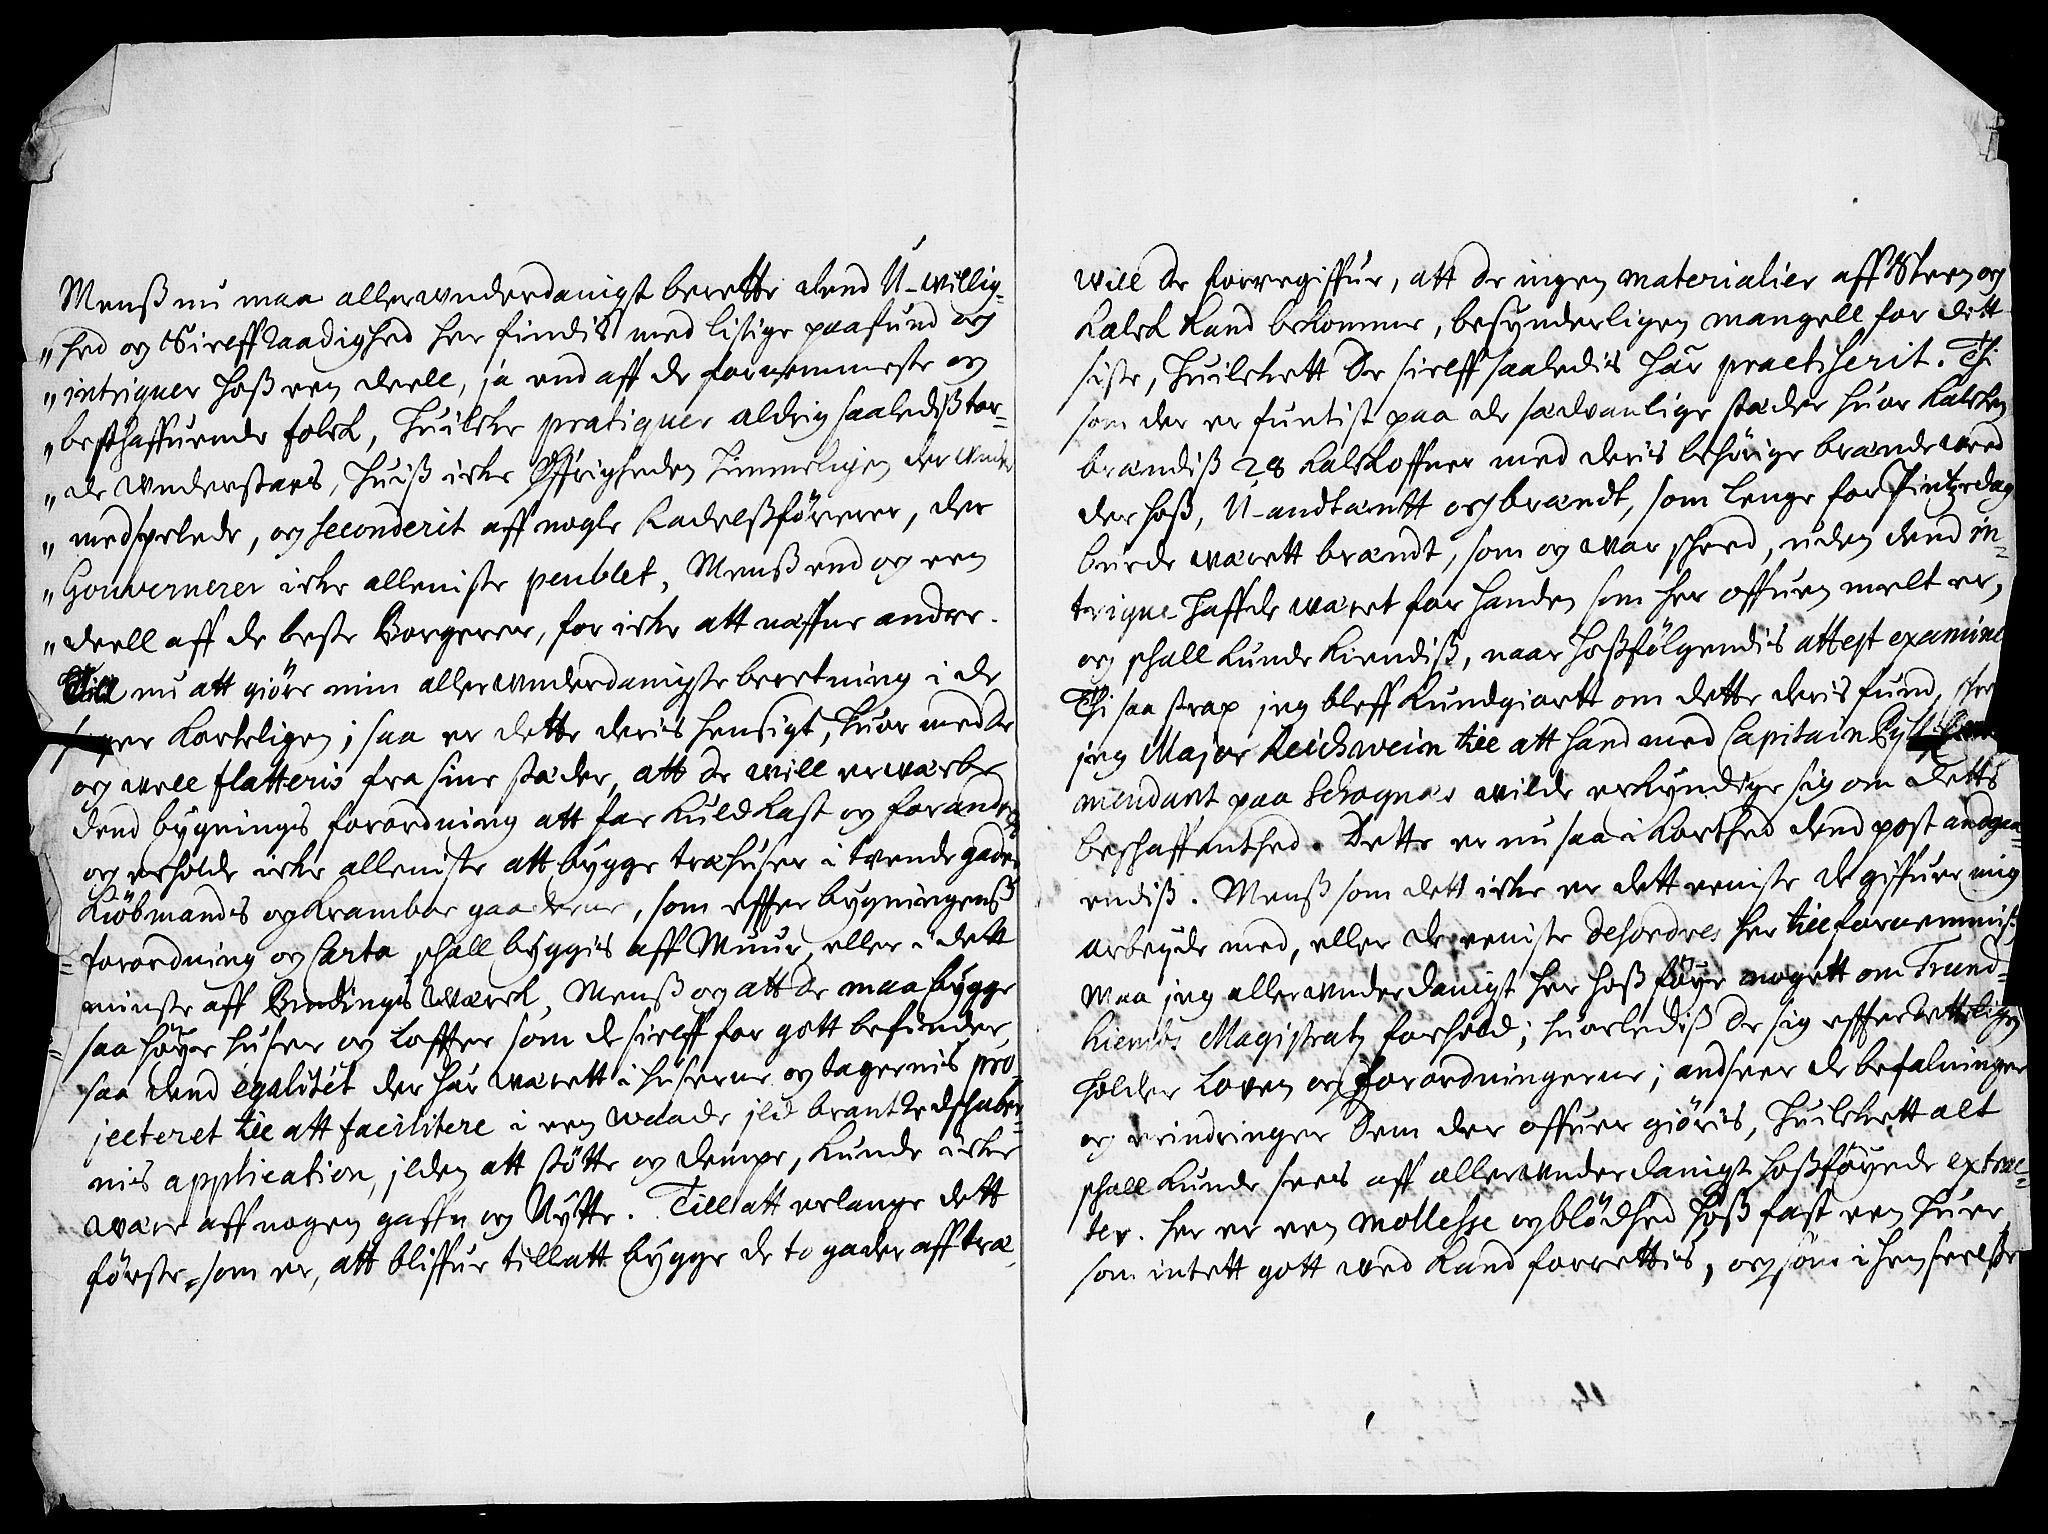 Menß nu maa allerwnderdanigst berette dend U-willig-
„hed og Sielffraadighed her findis med listige paafund og
„intriguer hoß een deell, ja end aff de fornemmeste og
„besthaffuende folck, huilcke pratiquer aldrig saalediß tor-
„de wnderstaaes, huiß icke Øffrigheden himmeligen der wnder
„medspelede, og seconderit aff nogle Radelßförerer, der
„Gouvernerer icke alleniste peublet, Menß end og een
„deell aff de beste Borgerer, for icke att næffne andre.
Till nu att giöre min allerwnderdanigste beretning i de
korteligen; saa er dette deris hensigt, huor med de
og well flatteris fra sine stæder, att de will erwærbe
dend bygnings forordning att faae kuldkast og forandret
og erholde icke alleniste att bygge træhuser i tvende gader,
Kiöbmands og Kramboe gaaderne, som effter bygningenß
forordning og Carta schall byggis aff Muur, eller i dett
minste aff Bindings Werck, Menß og att de maa bygge
saa høye huser og Loffter som de sielff for gott befinder,
saa dend egalitét der har wærett i huserne og tagernis pro-
jecteret till att facilitere i een waade jld brant Redschaber-
nis application, jlden att støtte og dempe, kunde icke
wære aff nogen gaffn og Nytte. Till att erlange dett
förste, som er, att bliffue tillatt bygge de to gader aff træ,
will de forregiffue, att de ingen materialier aff Steen og
Kalck kand bekomme, besynderligen mangell for dett
siste, huilckett de sielff saaledis har practiserit. Thi
som der er funtist paa de sædvanlige stæder huor kalcken
brændiß 28 kalckoffner med deris behørige brændeveed
der hoß, U-andtæntt og brændt, som lenge for Pintzedag
burde wærett brændt, som og war scheed, uden dend in-
trigue haffde wæret for handen som her offuen melt er,
og schall kunde kiendiß, naar hoßfölgendis attest examine
Thi saa strax jeg bleff kundgiortt om dette deris fund,
jeg Major Reichwein till att hand med Capitain
mendant paa Schognæs wilde erkyndige sig om detts
beschaffenhed. Dette er nu saa i korthed dend post andgaa-
endiß. Menß som dett icke er dett eeniste de giffuer mig
arbeyde med, eller de eeniste desordres her till fornemmis,
maa jeg allerwnderdanigst her hoß föye nogett om Trund-
hiembs Magistratz forhold; huorlediß de sig effterretteligen
holder Loven og forordningerne; andseer de befalninger
og erindringer dem der offuer giöris, huilckett alt
schall kunde sees aff allerwnderdanigst hoßføyede extrac-
ter. Her er een mollesse og blödhed hoß fast een huer,
som intett gott wed kand forrettis, og som i henseelße